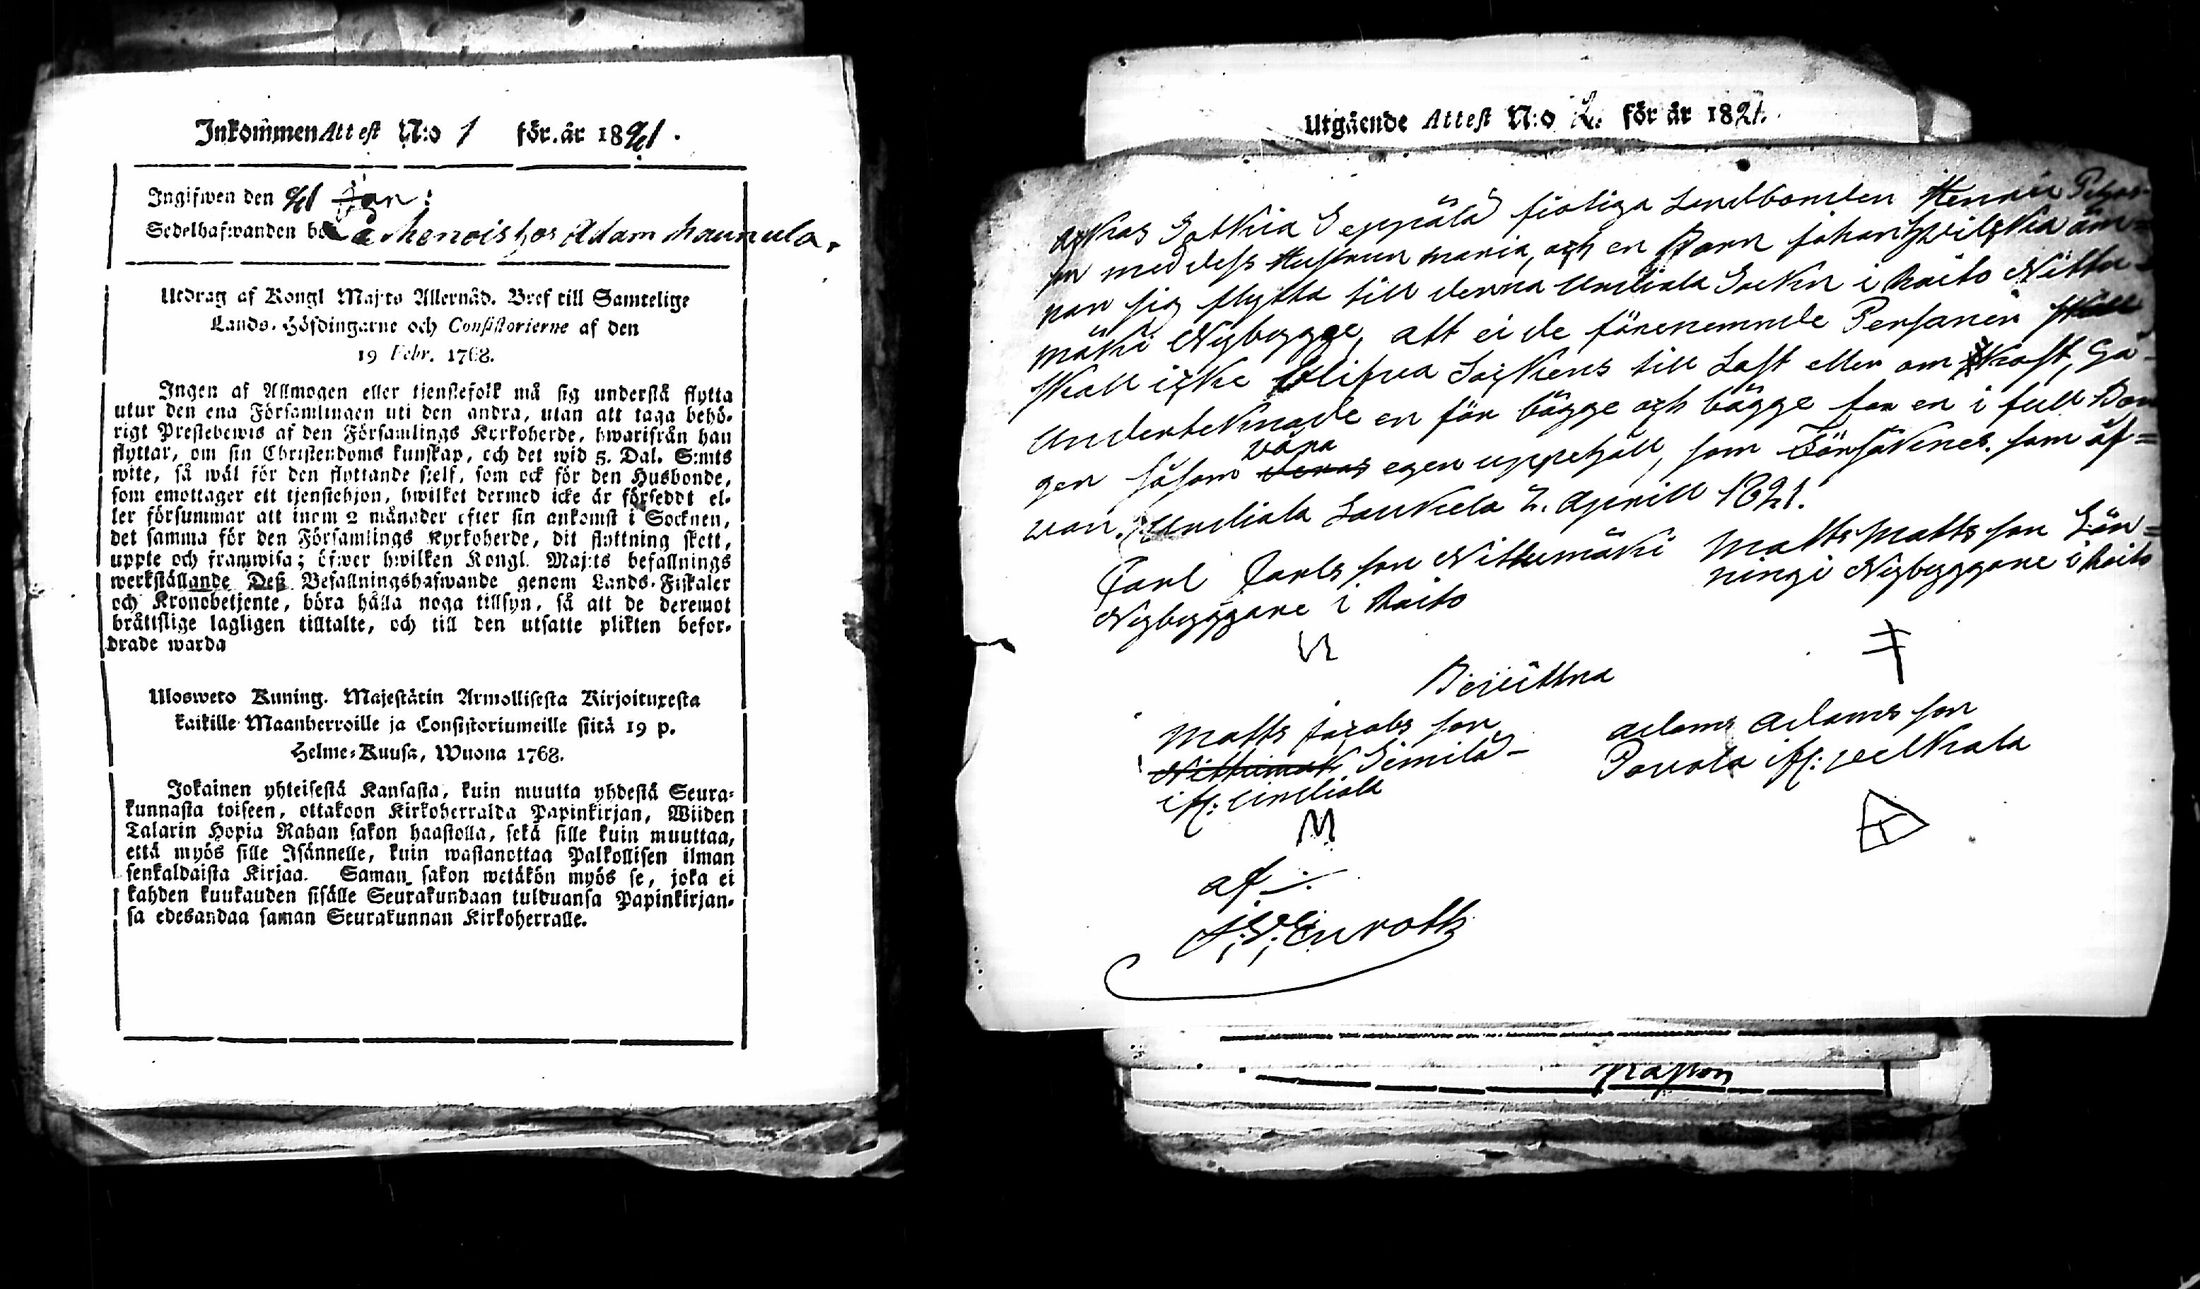 Inkommen Attest N:o 1 för år 1821.
Ingifwen den 21 Jan:
Sedelhafwanden bor Lackenois hos Adam Maunula.
Utdrag af Kongl Maj:ts Allernåd. Bref till Samtelige
Lands-Höfdingarne och Consistorierne af den
19 Febr. 1768.
Ingen af Allmogen eller tjenstefolk må sig understå flytta
utur den ena Församlingen uti den andra, utan att taga behö-
rigt Prestebewis af den Församlings Kyrkoherde, hwarifrån han
flyttar, om sin Christendoms kunskap, och det wid 5. Dal. S:mts
wite, så wäl för den flyttande sjelf, som ock för den Husbonde,
som emottager ett tjenstehjon, hwilket dermed icke är förseddt el-
ler försummar att inom 2 månader efter sin ankomst i Socknen,
det samma för den Församlings Kyrkoherde, dit flyttning skett,
uppte och framwisa; öfwer hwilken Kongl. Maj:ts befallnings
werkställande Deß Befallningshafwande genom Lands-Fiskaler
och Kronobetjente, böra hålla noga tillsyn, så att de deremot
bråttslige lagligen tilltalte, och till den utsatte plikten befor-
drade warda
Ulosweto Kuning. Majestätin Armollisesta Kirjoituxesta
kaikille Maanherroille ja Consistoriumeille siitä 19 p.
Helme-Kuusa, Wuona 1768.
Jokainen yhteisestä Kansasta, kuin muutta yhdestä Seura-
kunnasta toiseen, ottakoon Kirkoherralda Papinkirjan, Wiiden
Talarin Hopia Rahan sakon haastolla, sekä sille kuin muuttaa,
että myös sille Isännelle, kuin wastanottaa Palkollisen ilman
senkaldaista Kirjaa. Saman sakon wetäkön myös se, joka ei
kahden kuukauden sisälle Seurakundaan tulduansa Papinkirjan-
sa edesandaa saman Seurakunnan Kirkoherralle.
Utgående Attest N:o 2. för år 1821.
Seppälä Landbonden Henric
med dess Hustrun Maria, och en Barn Johan
nar sig flytta till denna Urdiala Sockn i Raito Nittu-
mäki Nybygge, att ei de förenemnde Personer skall
skall icke blifva Sockens till Last eller om kost, Gå
Underteknade en för bägge och bägge for en i full Bor
gen såsom våra deras egen uppehäll, som Försöknes. som äf=
van. Urdiala Laukela 2. Aprill 1821.
Carl Carls son Nittumäki
Nybyggare i Raito
Matts Matts son Hön=
ningi Nybyggare i Raito
Bevittna
Matts Jacobs son
Nittumäk Similä
i fr: Urdiala
M
Adams Adams son
Pavola i fr: velkala
af
Rasson